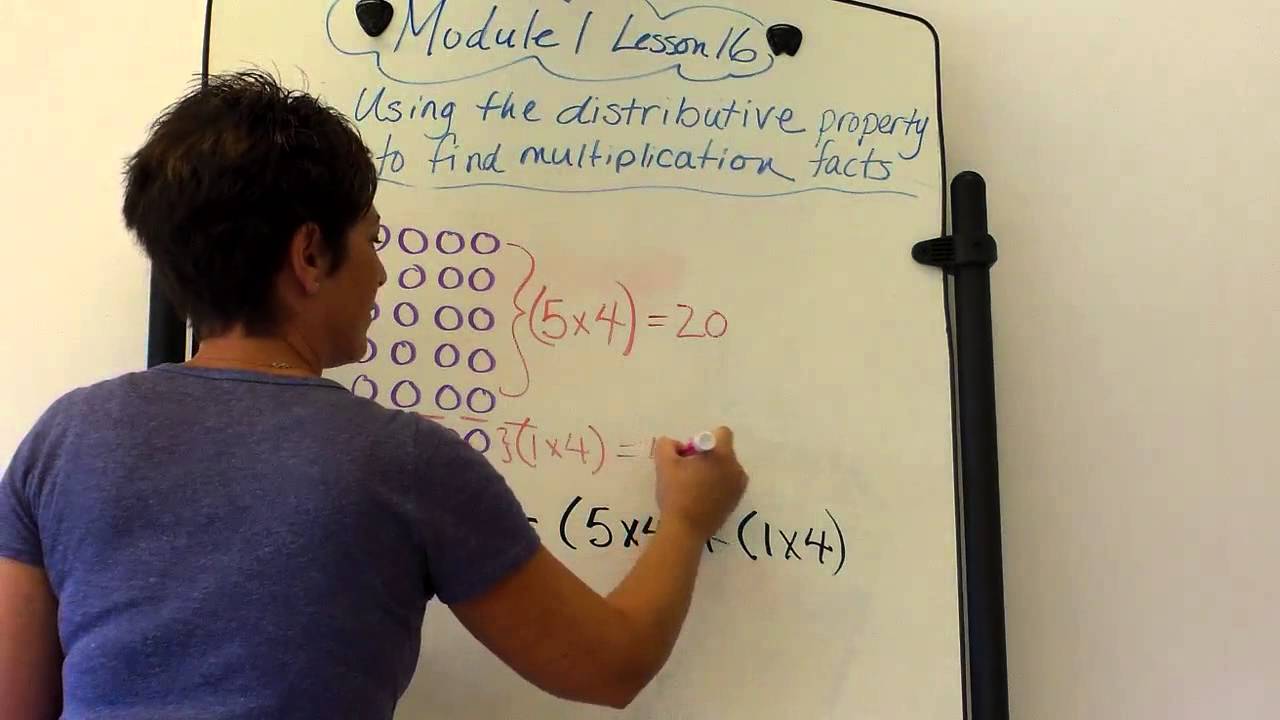 Module 1 Lesson 16
Using the distributive property
to find multiplication facts
(5x4) = 20
(1x4) =
= (5x4) + (1x4)